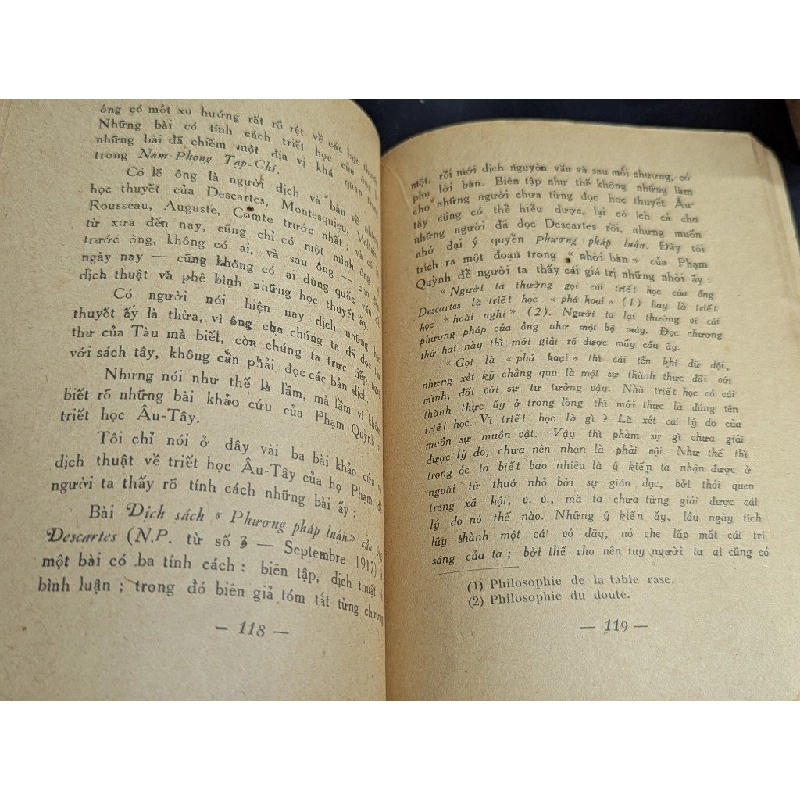 ông có một xu hướng rất rõ rệt về các
Những bài có tính cách triết học của ông
những bài đã chiếm một địa vị khá quan
trong Nam-Phong Tạp-Chí.
Có lẽ ông là người dịch và bàn về những
học thuyết của Descartes, Montesquieu, Voltaire
Rousseau, Auguste, Comte trước nhất ; và có
từ xưa đến nay, cũng chỉ có một mình ông
trước ông, không có ai, và sau ông — cho
ngày nay — cũng không có ai dùng quốc văn
dịch thuật và phê bình những học thuyết ấy.
Có người nói hiện nay dịch những học
thuyết ấy là thừa, vì ông cha chúng ta đã đọc
thư của Tàu mà biết, còn chúng ta trực tiếp
với sách tây, không cần phải đọc các bản dịch
Nhưng nói như thế là lầm, mà lầm vì không
biết rõ những bài khảo cứu của Phạm Quỳnh
triết học Âu-Tây.
Tôi chỉ nói ở đây vài ba bài khảo cứu
dịch thuật về triết học Âu-Tây của họ Phạm
người ta thấy rõ tính cách những bài ấy :
Bài Dịch sách « Phương pháp luận» của
Descartes (N.P. từ số 3 — Septembre 1917)
một bài có ba tính cách : biên tập, dịch thuật
bình luận ; trong đó biên giả tóm tắt từng chương
— 118 —
một, rồi mới dịch nguyên văn và sau mỗi chương, có
phụ lời bàn. Biên tập như thế không những làm
cho những người chưa từng đọc học thuyết Âu-
tây cũng có thể hiểu được, lại có ích cả cho
những người đã đọc Descartes rồi, nhưng muốn
nhớ đại ý quyển phương pháp luận. Đây tôi
trích ra một đoạn trong « nhời bàn » của Phạm
Quỳnh để người ta thấy cái giá trị những nhời ấy:
“Người ta thường gọi cái triết học của ông
Descartes là triết học « phá hoại » (1) hay là triết
học “hoài nghi” (2). Người ta lại thường ví cái
phương pháp của ông như một bộ máy. Đọc chương
thứ hai này thì mới giải rõ được mấy câu ấy.
“Gọi là «phá hoại» thì cái tên khí dữ dội,
nhưng xét kỹ chẳng qua là một sự thành thực đối với
mình, đối với sự tư tưởng vậy. Nhà triết học có cái
thành thực ấy ở trong lòng thì mới thực là đúng tên
triết học. Vì triết học là gì ? Là xét cái lý do của
muôn sự muôn vật. Vậy thì phàm sự gì chưa giải
được lý do, chưa nên nhận là phải nội. Như thế thì
trong óc ta biết bao nhiêu là ý kiến ta nhận được ở
ngoài từ thuở nhỏ bởi sự gián dục, bởi thói quen
trong xã hội, v. v., mà ta chưa từng giải được cái
lý do nó thế nào. Những ý kiến ấy, lâu ngày tích
lũy thành một cái vỏ dầy, nó che lấp mất cái trí
sáng của ta ; bởi thế cho nên tuy người ta ai cũng có
(1) Philosophie de la table rase.
(2) Philosophie du doute.
— 119 —